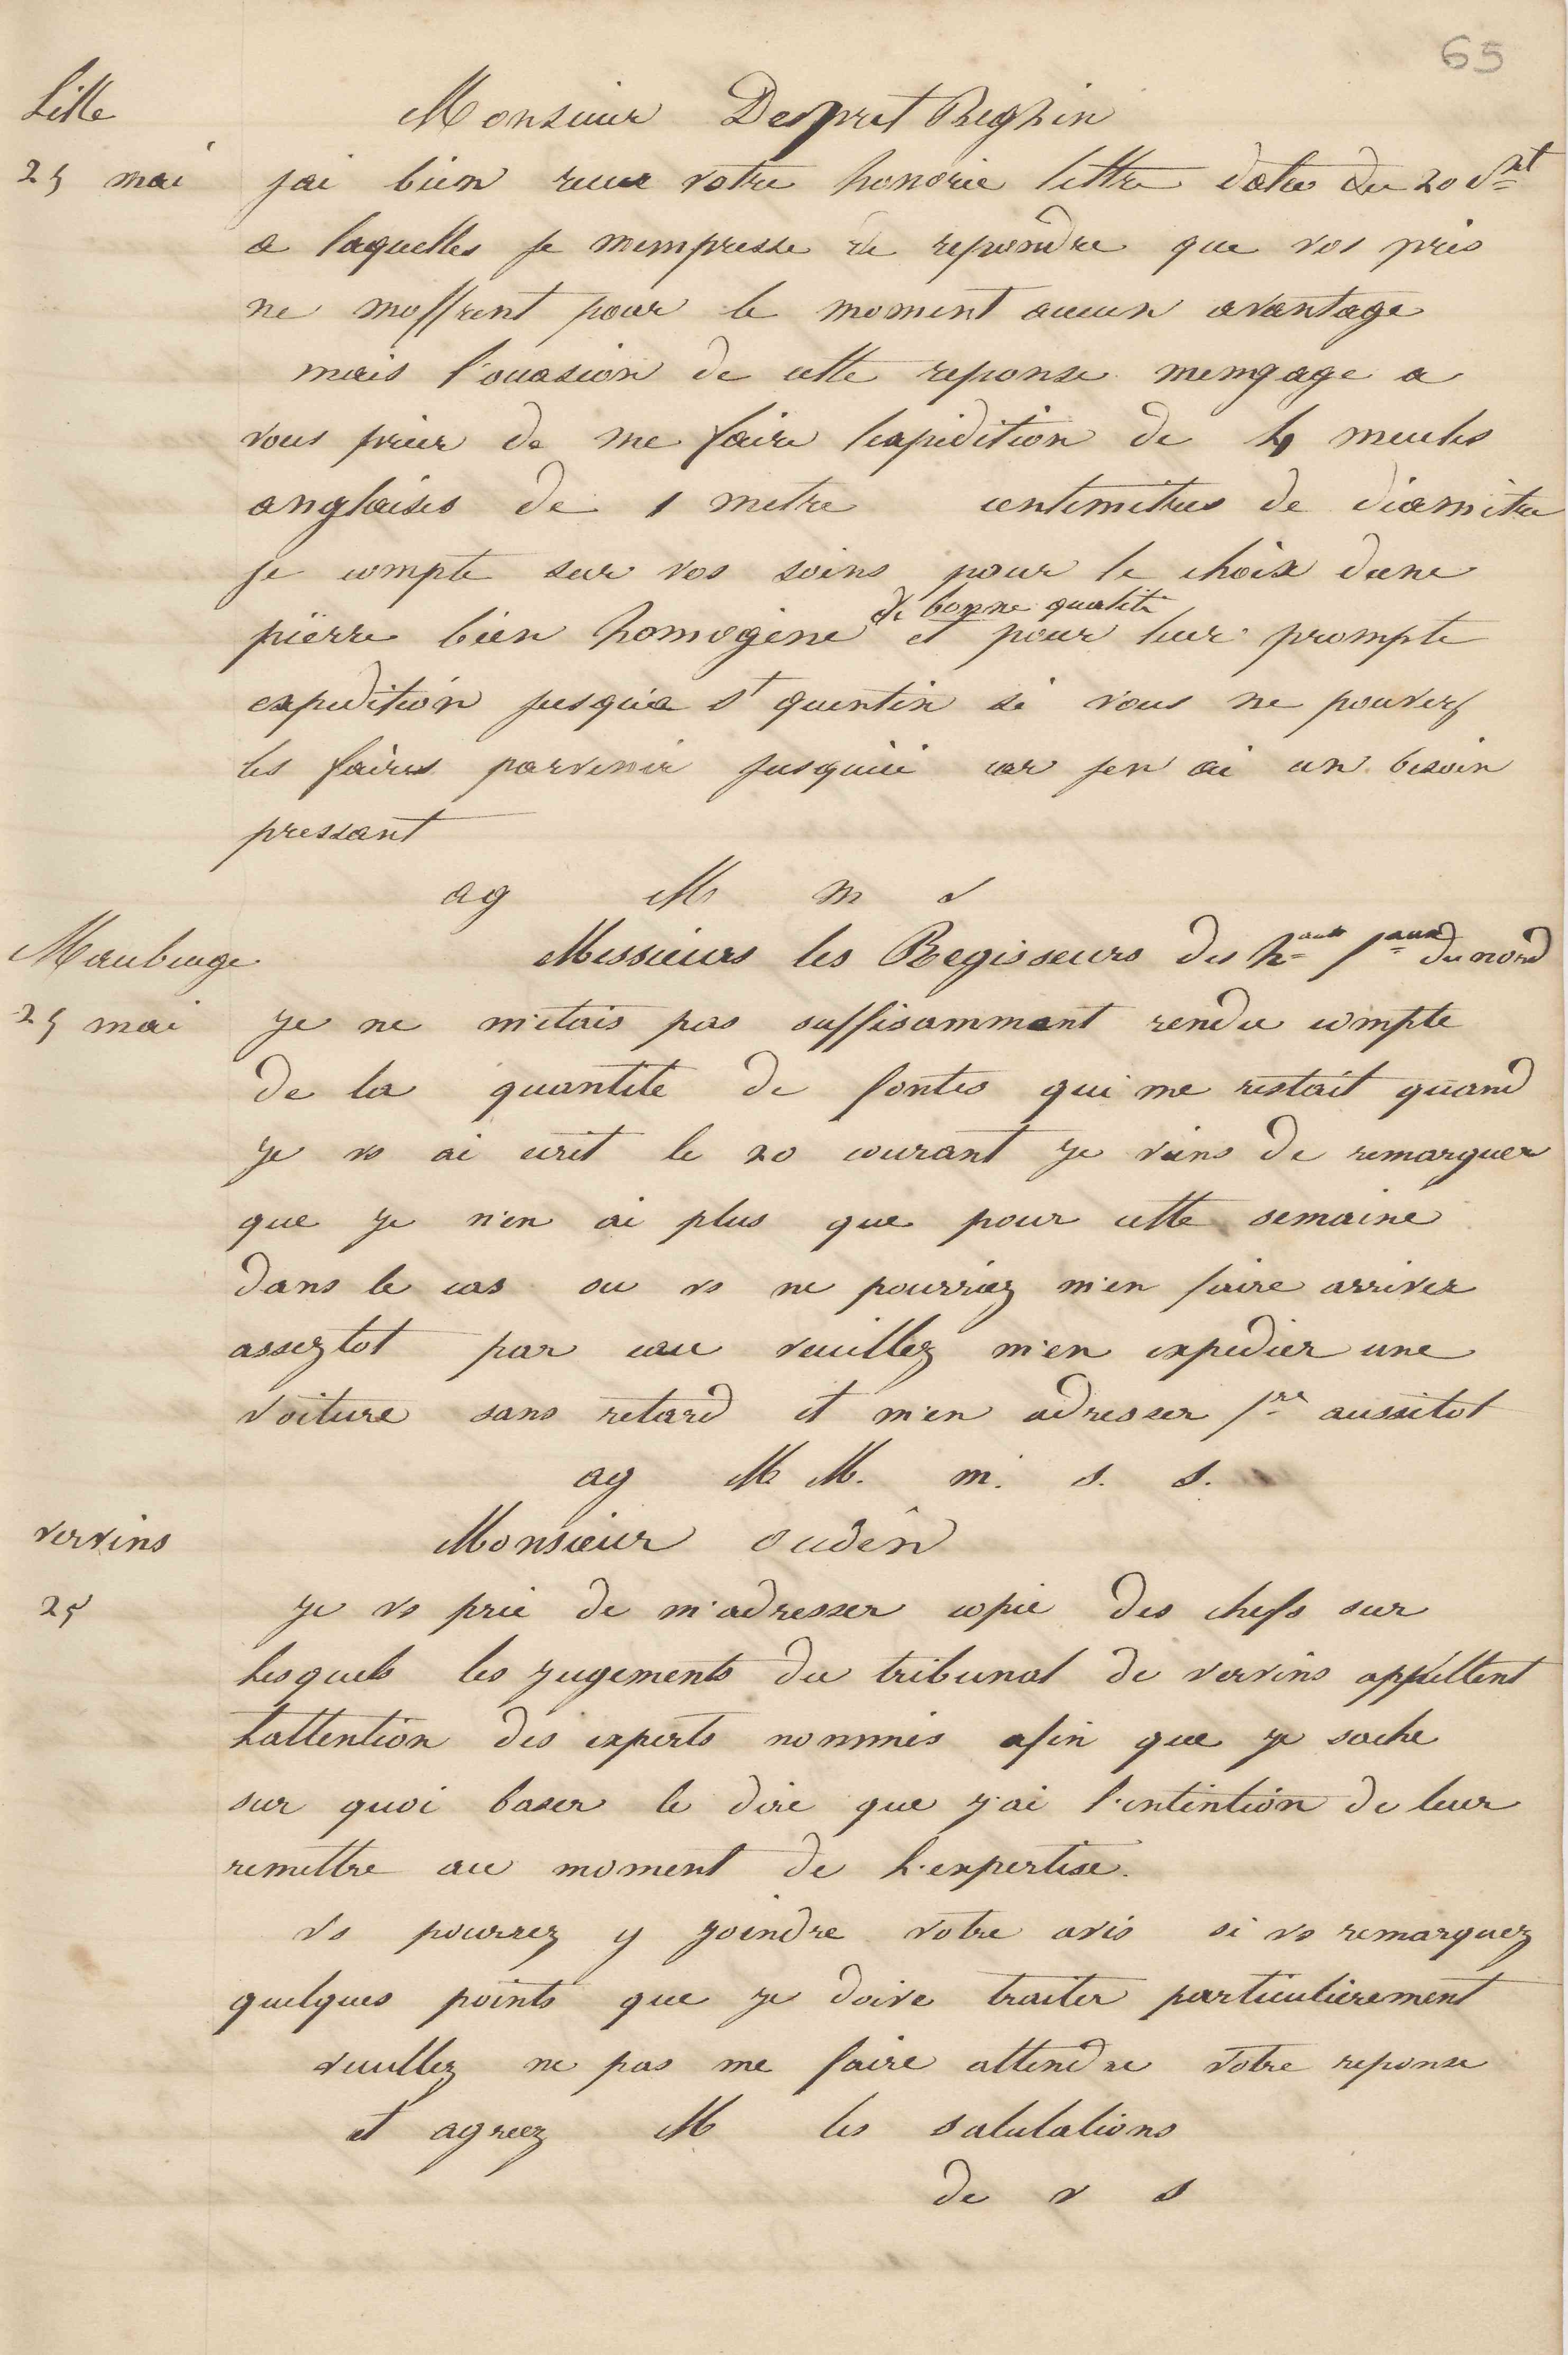 65
Lille
Monsieur Despret Beghin
25 mai
jai bien recue votre honorée lettre datée du 20 Ct
a laquelles je mempresse de repondre que vos prix
ne moffrent pour le moment aucun avantage
mais l'ouasion de cette reponse mengage a
vous prier de me faire lexpedition de 4 meules
anglaises de 1 metre centimetres de diamètre
je compte sur vos soins pour le choix dune
de bonne qualité
pierre bien homogène et pour leur prompte
expedition jusqu'a st quentin si vous ne pouvez
les faires parvenir jusquici car jen ai un besoin
pressant
ag M m s
Maubeuge
Messieurs les Regisseurs des hauts faux du nord
25 mai
je ne m'etais pas suffisamment rendu compte
de la quantité de fontes qui me restait quand
je vs ai ecrit le 20 courant je viens de remarquer
que je n'en ai plus que pour cette semaine
dans le cas ou vs ne pourriez m'en faire arriver
asseztot par eau veuillez m'en expedier une
voiture sans retard et m'en adresser fre aussitot
ag M M. m. s. s.
vervins
Monsieur oudin
25
je vs prie de m'adresser copie des chefs sur
lesquels les jugements du tribunal de vervins appellent
lattention des experts nommés afin que je sache
sur quoi baser le dire que j'ai l'intention de leur
remettre au moment de l'expertise.
vs pourrez y joindre votre avis si vs remarquez
quelques points que je doive traiter particulierement
veuillez ne pas me faire attendre votre reponse
et agreez M les salutations
de v s